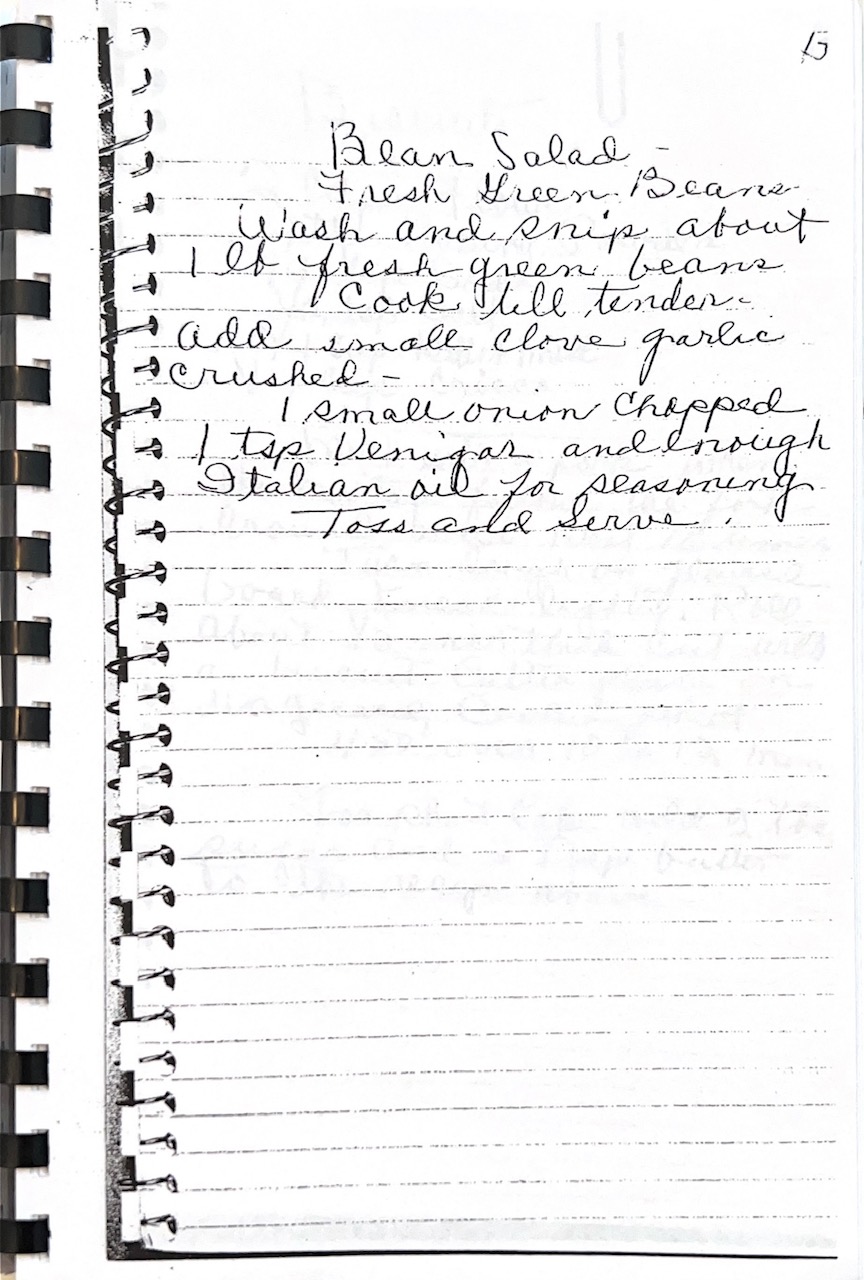 15
Bean Salad -
Fresh Green Beans
Wash and snip about
1 lb fresh green beans
Cook till tender.
add small clove garlic
crushed -
1 small onion Chopped
1 tsp Venigar and enough
Italian oil for seasoning
Toss and Serve.